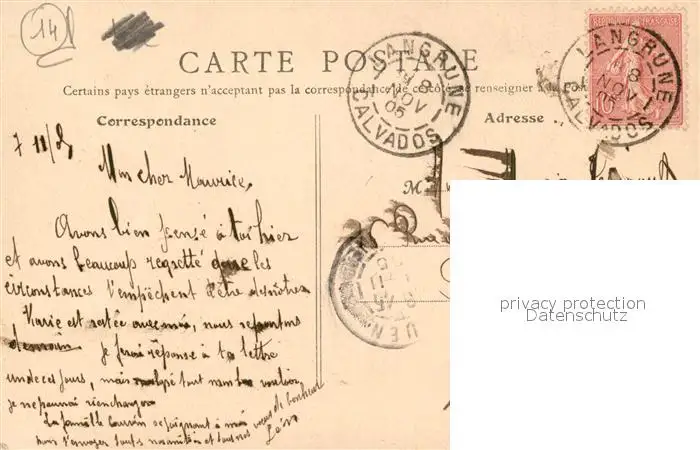 14
CARTE POSTALE
Certains pays étrangers n'acceptent pas la correspondance de ce côté se renseigner à la Poste
Correspondance
Adresse
LANGRUNE
8
NOV
05
CALVADOS
LANGRUNE
8
NOV
05
CALVADOS
REPUBLIQUE FRANÇAISE
10
7 11/5
Mon cher Maurice,
M
Avons bien pensé à toi hier
et avons beaucoup regretté que les
circonstances t'empêchent d'être des nôtres
Marie est restée avec moi, nous repartons
demain. je ferai réponse à ta lettre
un de ces jours, mais malgré tout mon vouloir
je ne pourrai rien changer
La famille se joignant à moi
pour t'envoyer toutes nos amitiés et tous nos vœux de bonheur
privacy protection
Datenschutz